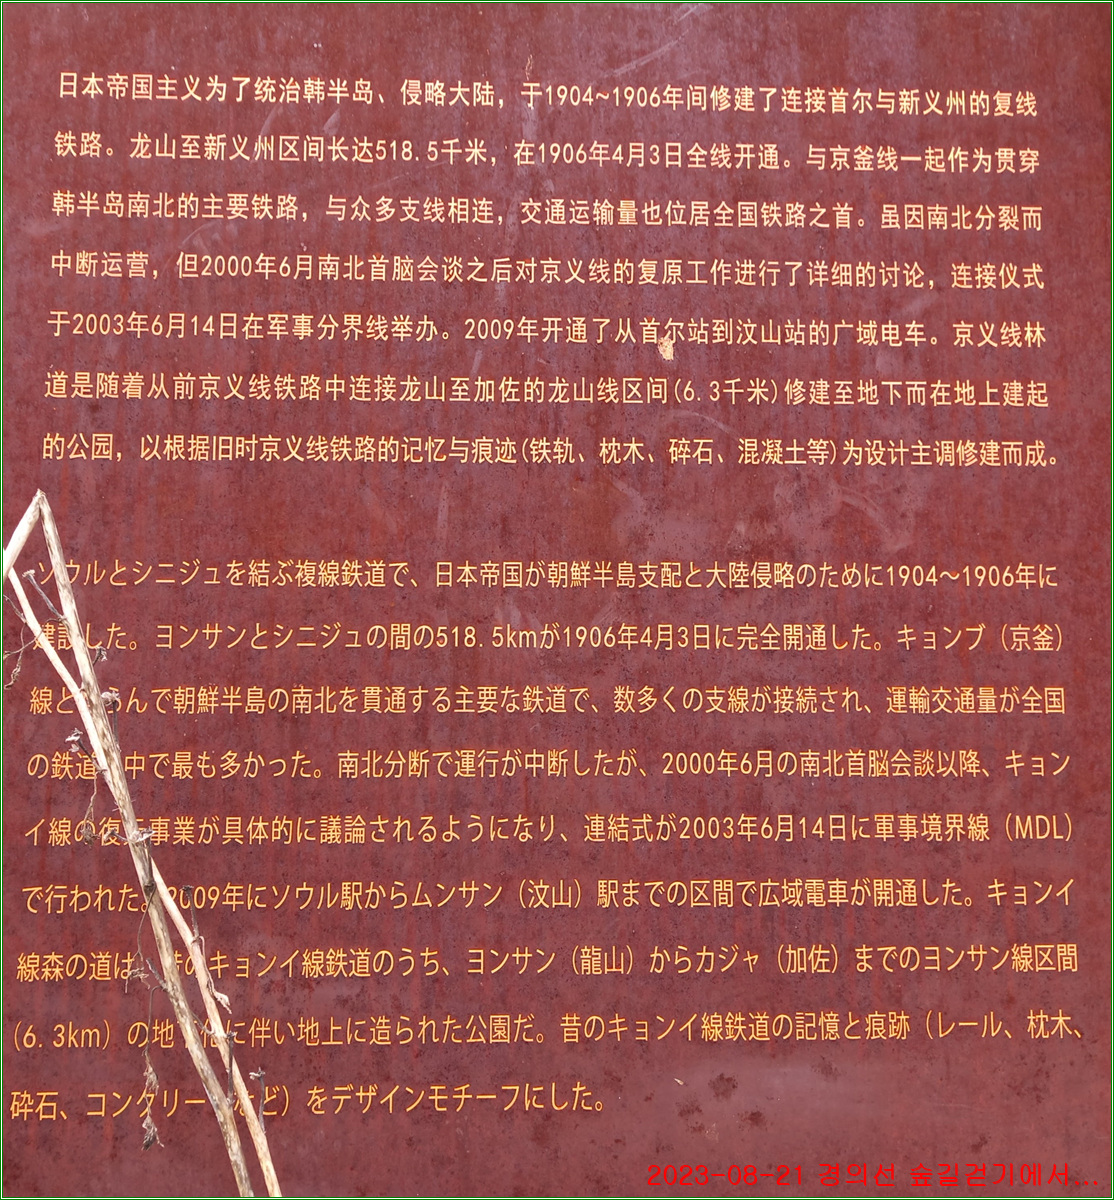 日本帝国主义为了统治韩半岛、侵略大陆，于1904~1906年间修建了连接首尔与新义州的复线
铁路。龙山至新义州区间长达518.5千米，在1906年4月3日全线开通。与京釜线一起作为贯穿
韩半岛南北的主要铁路，与众多支线相连，交通运输量也位居全国铁路之首。虽因南北分裂而
中断运营，但2000年6月南北首脑会谈之后对京义线的复原工作进行了详细的讨论，连接仪式
于2003年6月14日在军事分界线举办。2009年开通了从首尔站到汶山站的广域电车。京义线林
道是随着从前京义线铁路中连接龙山至加佐的龙山线区间(6.3千米)修建至地下而在地上建起
的公园，以根据旧时京义线铁路的记忆与痕迹(铁轨、枕木、碎石、混凝土等)为设计主调修建而成。
ソウルとシニジュを結ぶ複線鉄道で、日本帝国が朝鮮半島支配と大陸侵略のために1904～1906年に
建設した。ヨンサンとシニジュの間の518.5kmが1906年4月3日に完全開通した。キョンブ（京釜）
線と んで朝鮮半島の南北を貫通する主要な鉄道で、数多くの支線が接続され、運輸交通量が全国
の鉄道 中で最も多かった。南北分断で運行が中断したが、2000年6月の南北首脳会談以降、キョン
イ線の復元事業が具体的に議論されるようになり、連結式が2003年6月14日に軍事境界線（MDL）
で行われた。2009年にソウル駅からムンサン（汶山）駅までの区間で広域電車が開通した。キョンイ
線森の道は キョンイ線鉄道のうち、ヨンサン（龍山）からカジャ（加佐）までのヨンサン線区間
（6.3km）の地 に伴い地上に造られた公園だ。昔のキョンイ線鉄道の記憶と痕跡（レール、枕木、
砕石、コンクリー など）をデザインモチーフにした。
2023-08-21 경의선 숲길걷기에서...